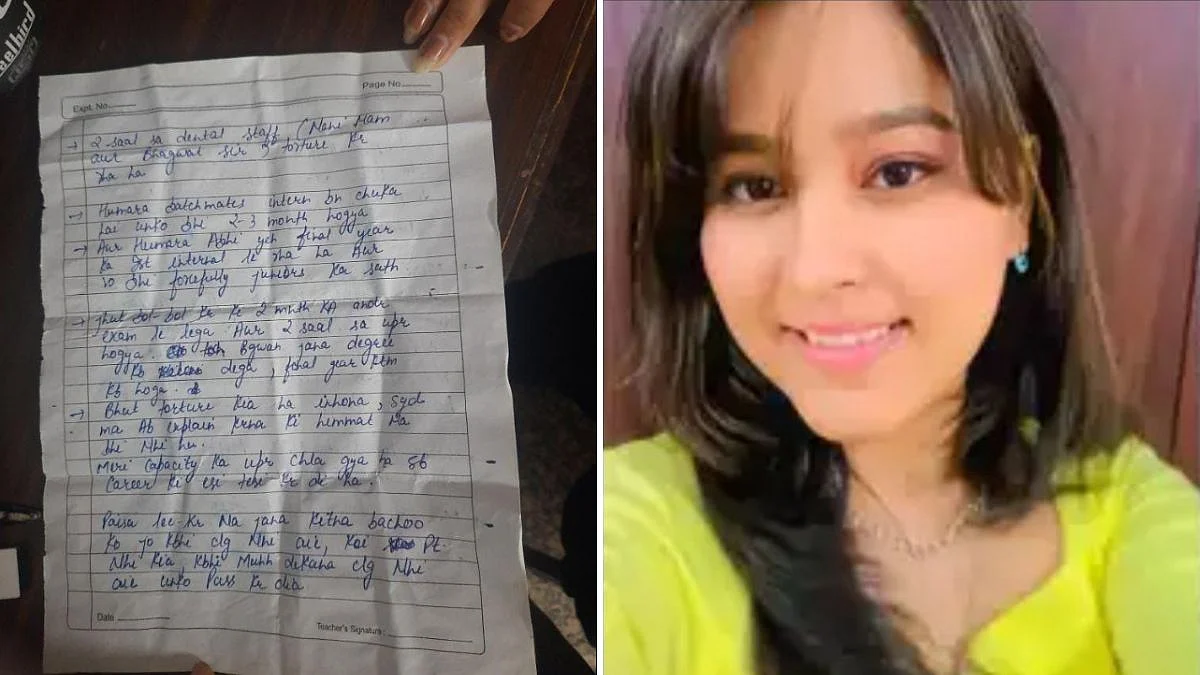 aelbird
Expt. No.
Page No.
→ 2 saal sa dental staff (Mam
aur Bhagwat sir ) torture kr
rha ha
→ Humara batchmates intern bn chuka
hai unko bhi 2-3 month hogya
→ Aur Humara Abhi yeh final year
ka Ist internal le rha ha Aur
vo bhi forcefully juniors ka sath
→ jhut bol-bol kr ke 2 month KA andr
exam le lega. Aur 2 saal sa upr
hogya. Bgwan jana degree
kb dega, final year ktm
kb hoga.
→ Bhut torture kia ha inhona,
ma Ab explain krna ki himmat na
bhi Nhi hu.
Meri capacity ka upr chla gya ha sb
Career ki esi tesi kr di ha.
Paisa lee-kr Na jana kitna bachoo
ko jo kbhi clg Nhi aie, koi Pt.
Nhi kia, kbhi Muhh dikana clg Nhi
aie unko Pass kr dia
Date
Teacher's Signature: